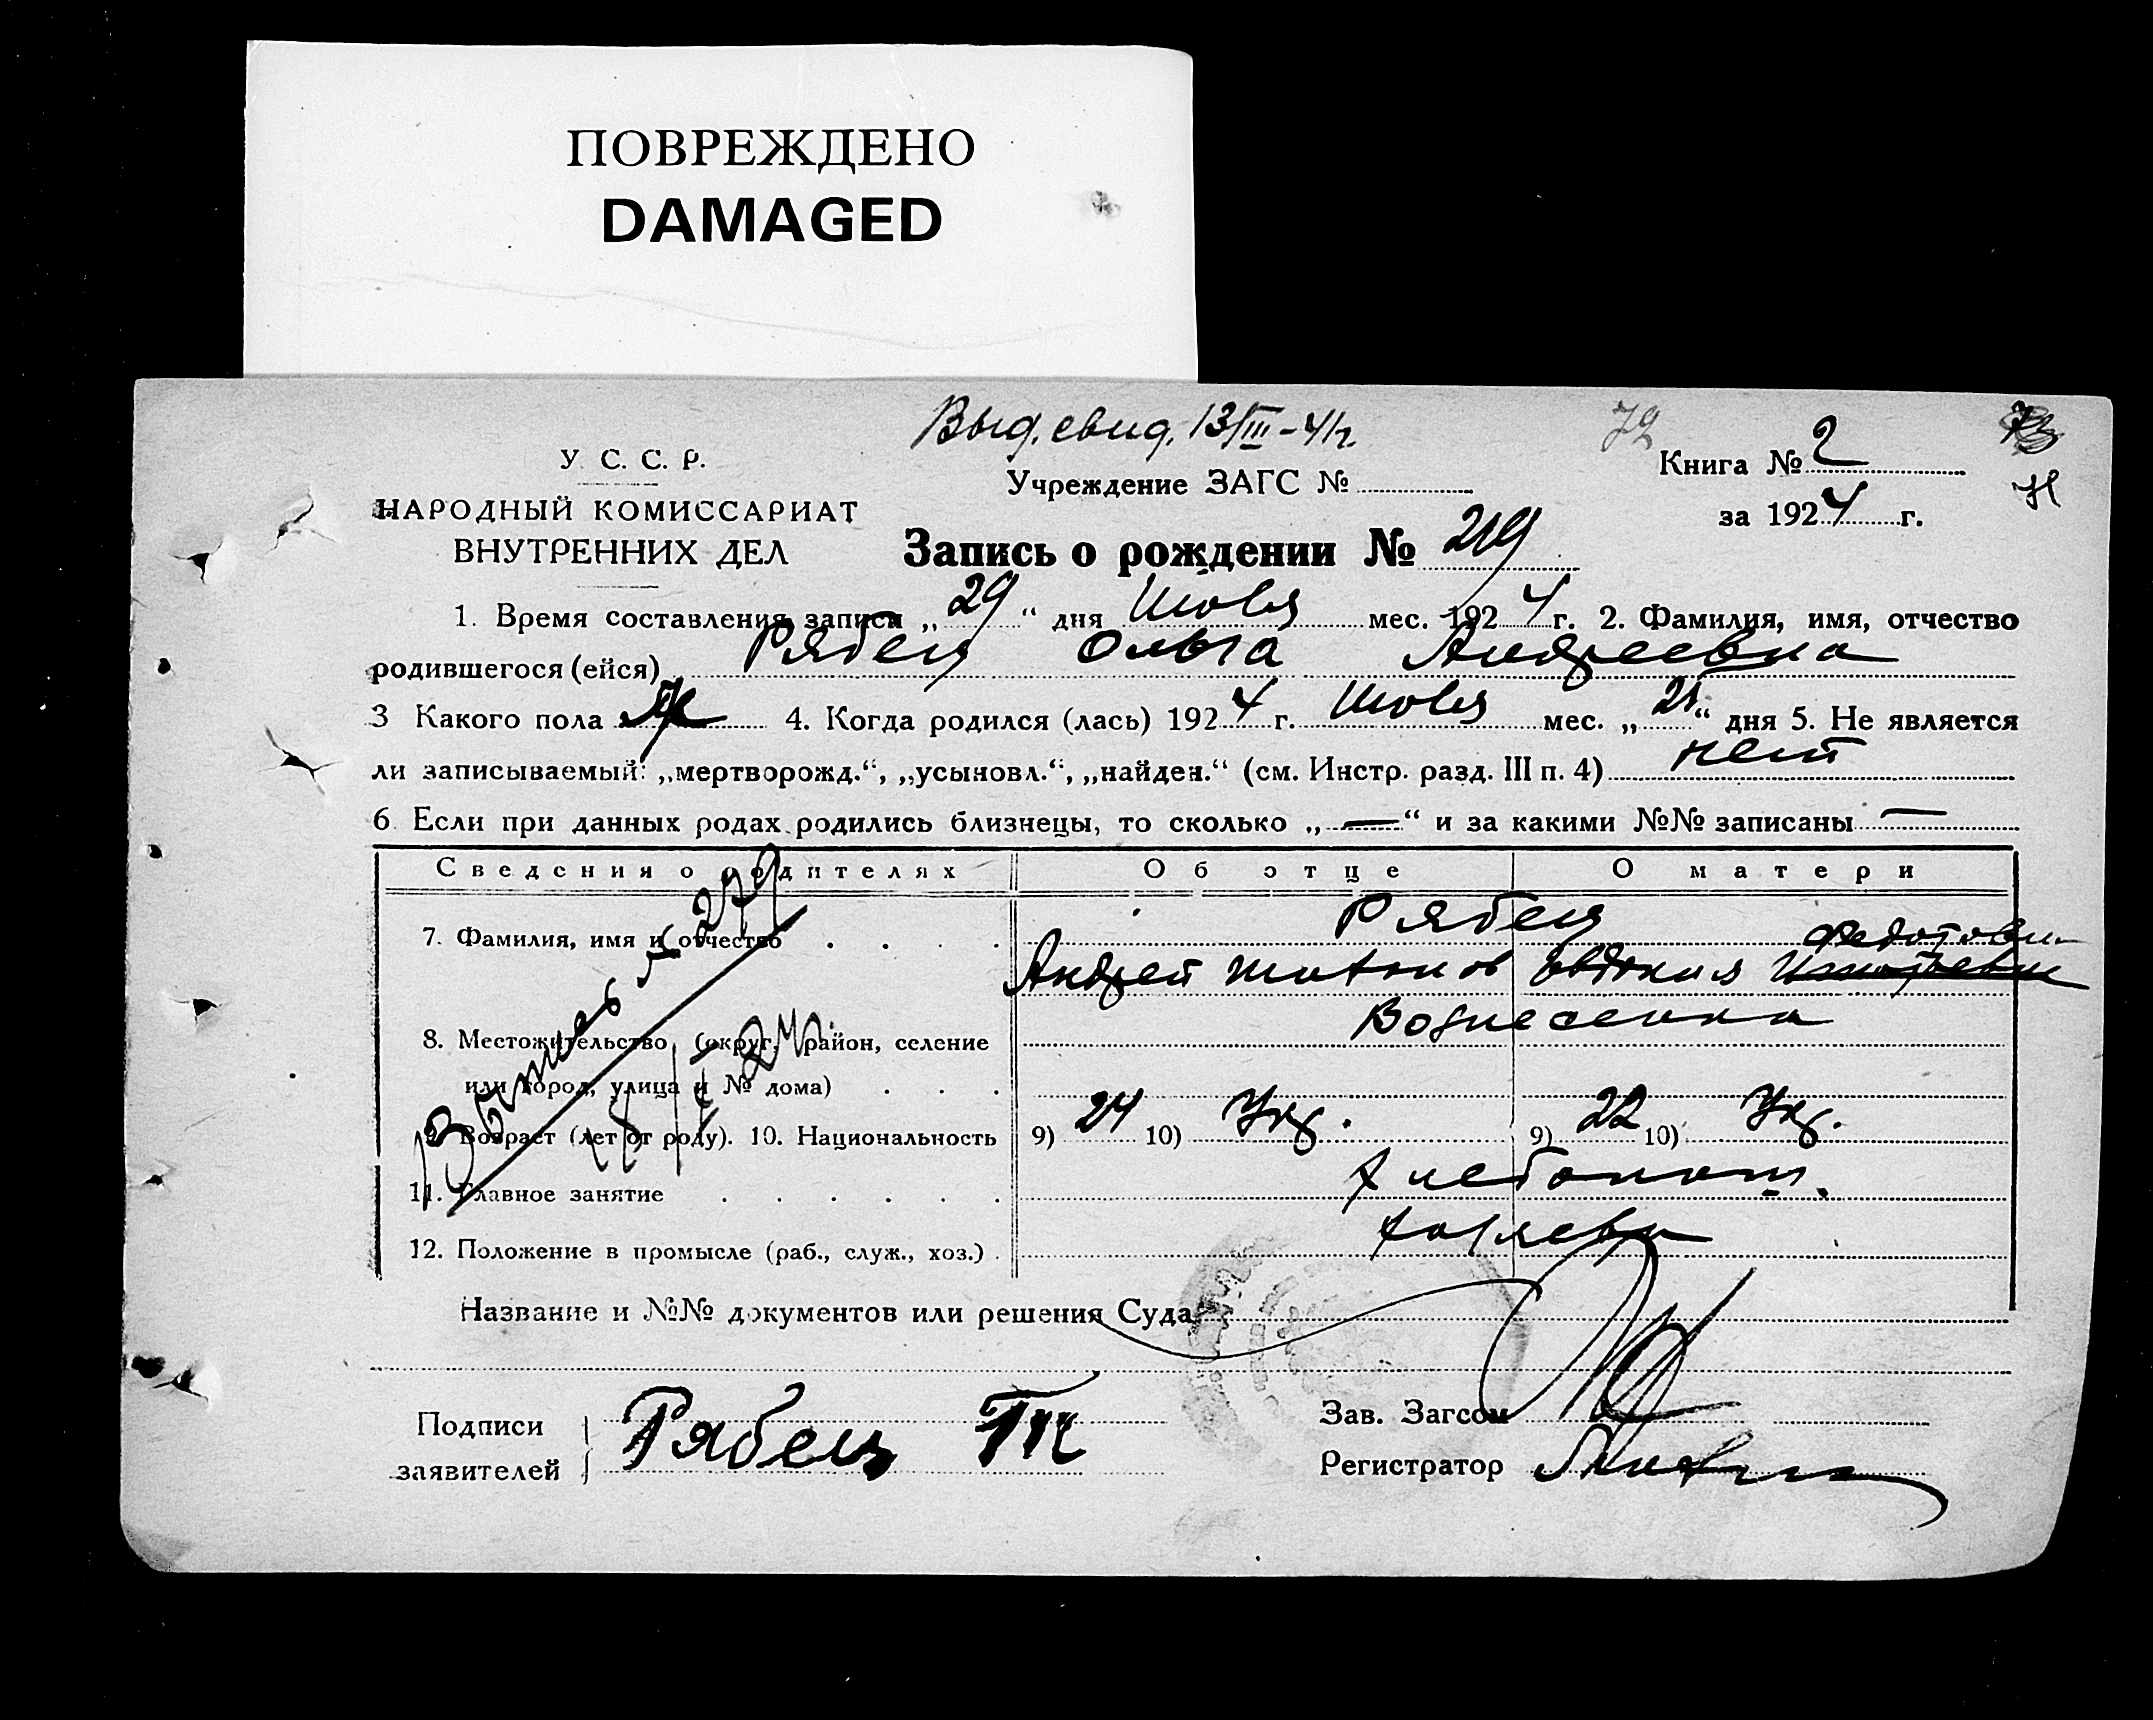 ПОВРЕЖДЕНО
DAMAGED
Выд. свид. 13/III-41г.
72
У. С. С. Р.
НАРОДНЫЙ КОМИССАРИАТ
ВНУТРЕННИХ ДЕЛ
Учреждение ЗАГС №
Книга № 2
за 1924 г.
Запись о рождении № 219
1. Время составления записи „ 29 “ дня Июля мес. 1924 г. 2. Фамилия, имя, отчество
родившегося (ейся) Рябец Ольга Андреевна
3 Какого пола ж 4. Когда родился (лась) 1924 г. Июля мес. „ 21 “ дня 5. Не является
ли записываемый: „мертворожд.“, „усыновл.“, „найден.“ (см. Инстр. разд. III п. 4) нет
6. Если при данных родах родились близнецы, то сколько „ — “ и за какими №№ записаны —
Сведения о родителях Об отце О матери
7. Фамилия, имя и отчество Рябец
Андрей Тихонов Евдокия Федотовн.
8. Местожительство (округ, район, селение Вознесенка
или город, улица и № дома)
9. Возраст (лет от роду). 10. Национальность 9) 24 10) Укр. 9) 22 10) Укр.
11. Главное занятие Хлебопаш.
12. Положение в промысле (раб., служ., хоз.) хозяева
Выпись № 279
Название и №№ документов или решения Суда
Подписи
заявителей Рябец
Зав. Загсом
Регистратор